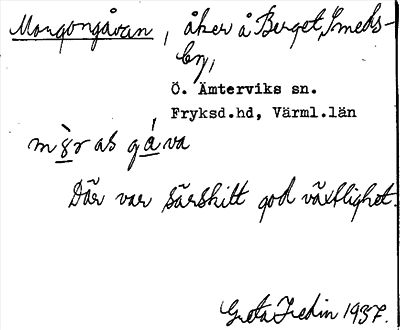 Morgongåvan, åker å Berget, Smeds-
by,
Ö. Ämterviks sn.
Fryksd.hd, Värml.län
mo̱̊ras gá̱va
Där var särskilt god växtlighet.
Greta Fredin 1937.